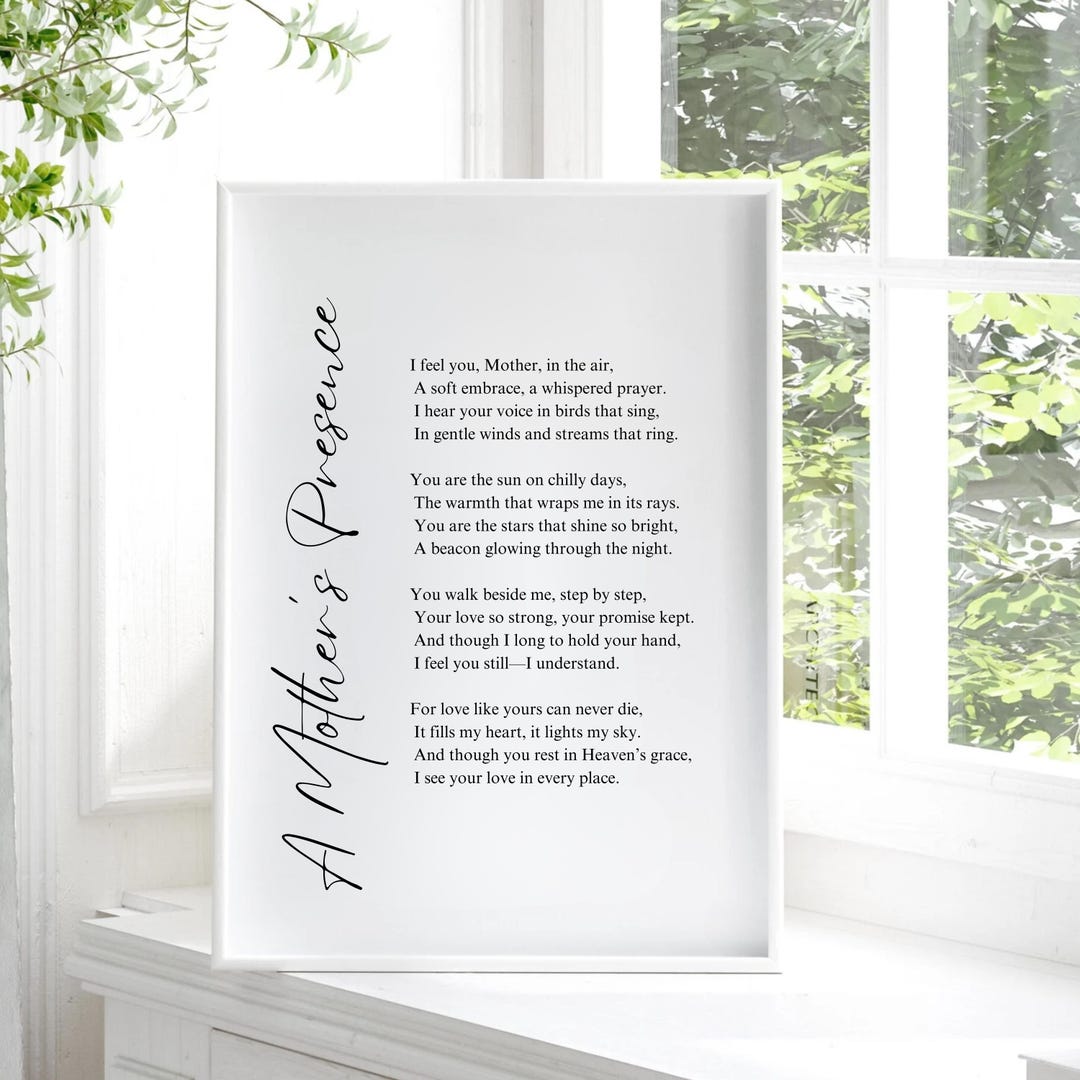 A Mother's Presence
I feel you, Mother, in the air,
A soft embrace, a whispered prayer.
I hear your voice in birds that sing,
In gentle winds and streams that ring.
You are the sun on chilly days,
The warmth that wraps me in its rays.
You are the stars that shine so bright,
A beacon glowing through the night.
You walk beside me, step by step,
Your love so strong, your promise kept.
And though I long to hold your hand,
I feel you still—I understand.
For love like yours can never die,
It fills my heart, it lights my sky.
And though you rest in Heaven’s grace,
I see your love in every place.